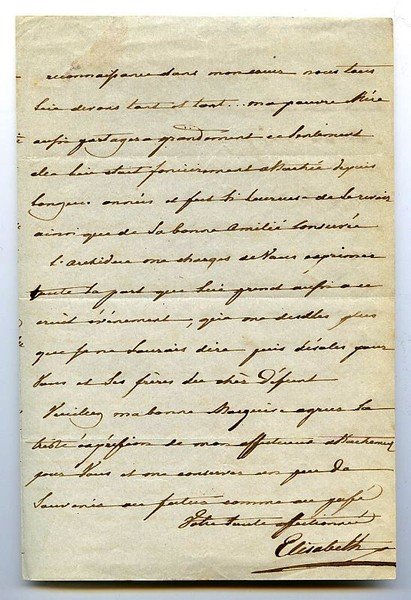 reconnaissance dans mon cœur nous tous
lui devons tant et tant.. ma pauvre Mère
aussi partagera grandement ce Sentiment
elle lui était foncièrement attachée depuis
longues années et fut si heureuse de le revoir
ainsi que de sa bonne Amitié conservée
l'Archiduc me charges de Vous exprimer
toute la part que lui prend aussi a ce
cruel événement, qui me désoles plus
que je ne saurais dire, puis désoles pour
Vous et Ses frères du cher Défunt
Veuillez ma bonne Marquise agréer la
triste expression de mon affectueux attachement
pour Vous et me conserver un peu de
Souvenir au futur comme au passé
Votre toute affectionnée
Elisabeth